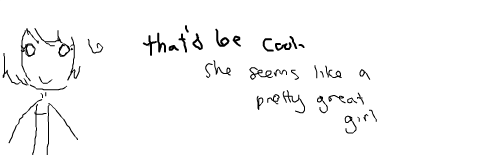 that'd be cool.
she seems like a
pretty great
girl